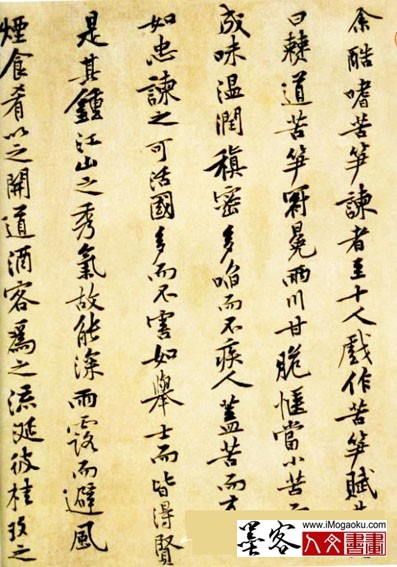 余酷嗜苦笋諫者至十人戲作苦笋賦
曰僰道苦笋冠冕兩川甘脆愜當小苦而
成味温潤稹密多啗而不疾人蓋苦而
如忠諫之可活國多而不害如舉士而皆得賢
是其鍾江山之秀氣故能深雨露而避風
煙食肴以之開道酒客為之流涎彼桂玫之
墨客
www.iMogaoku.com
人文書畫